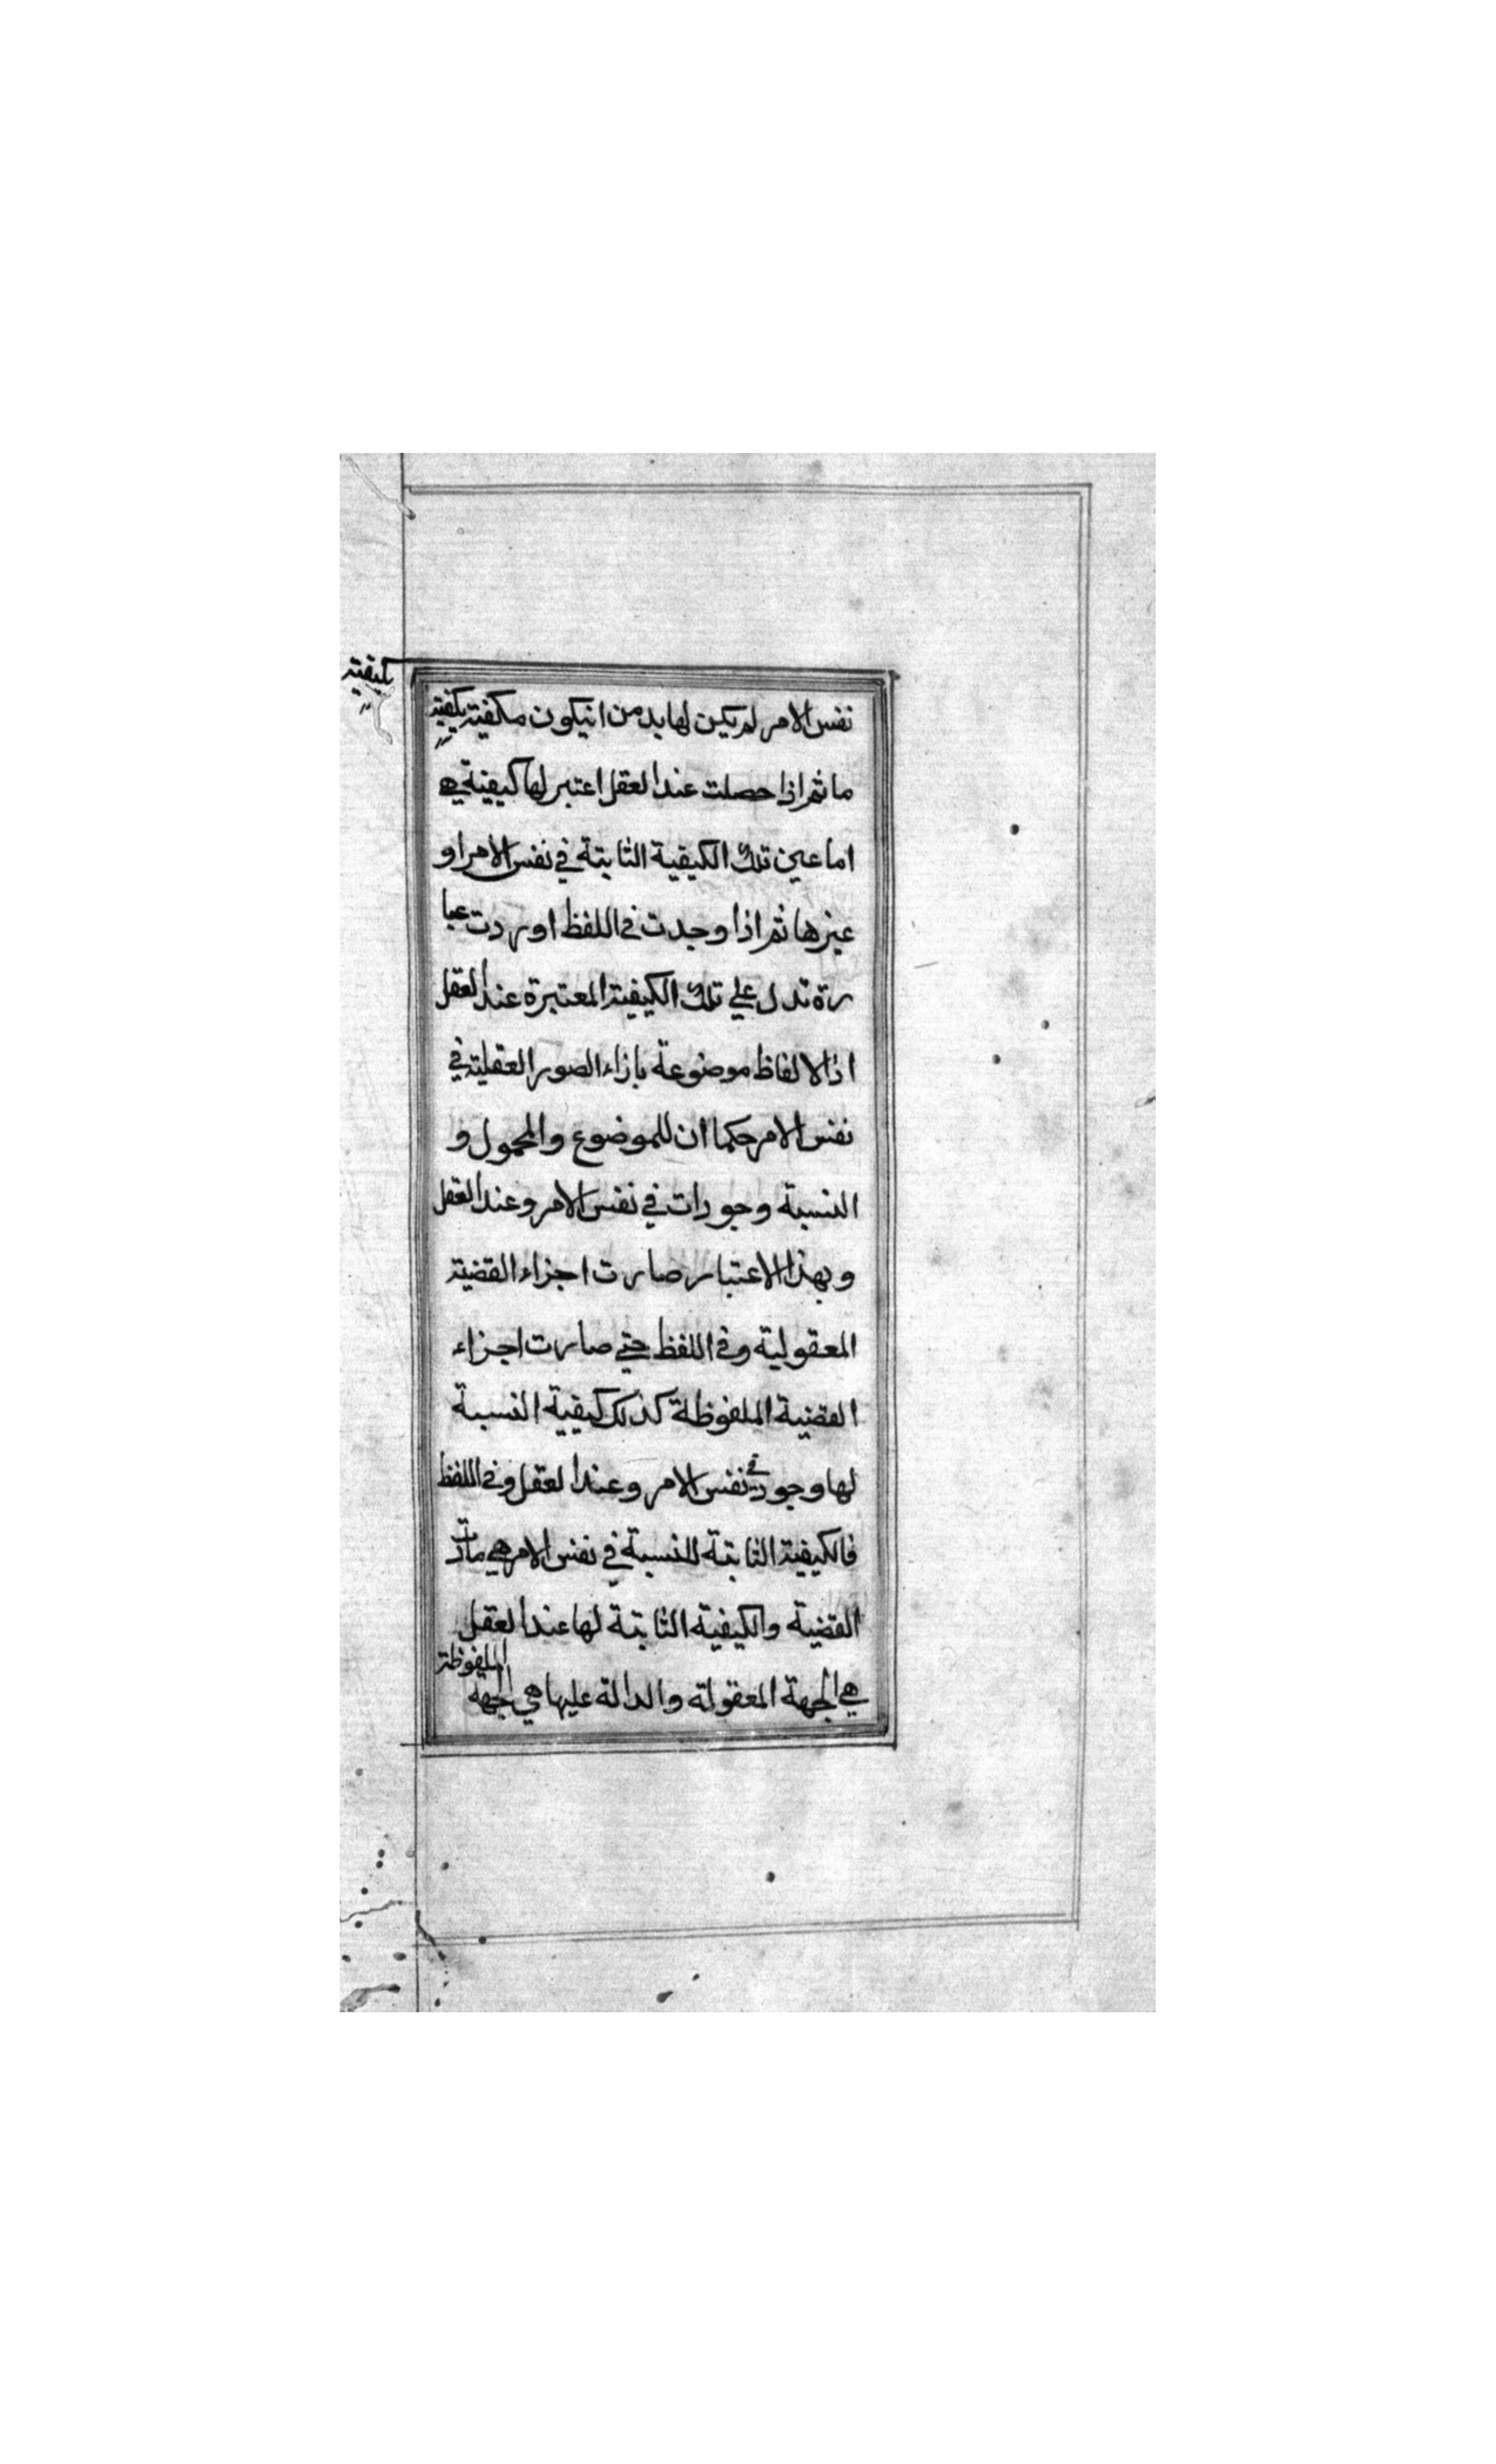 بكيفية
نفس الامر لم يكن لها بد من انيكون مكفية بكفية
ما ثم اذا حصلت عند العقل اعتبر لها كيفية هي
اما عين تلك الكيفية الثابتة في نفس الامر او
غيرها ثم اذا وجدت في اللفظ اوردت عبا
رة تدل علي تلك الكيفية المعتبرة عند العقل
اذ الالفاظ موضوعة بازاء الصور العقلية في
نفس الامر حكما ان للموضوع والمحمول و
النسبة وجودات في نفس الامر وعند العقل
وبهذا الاعتبار صارت اجزاء القضية
المعقولية وفي اللفظ حتي صارت اجزاء
القضية الملفوظة كذلك كيفية النسبة
لها وجود في نفس الامر وعند العقل وفي اللفظ
فالكيفية الثابتة للنسبة في نفس الامر هي مادت
القضية والكيفية الثابتة لها عند العقل
هي الجهة المعقولة والدالة عليها هي الجهة الملفوظة